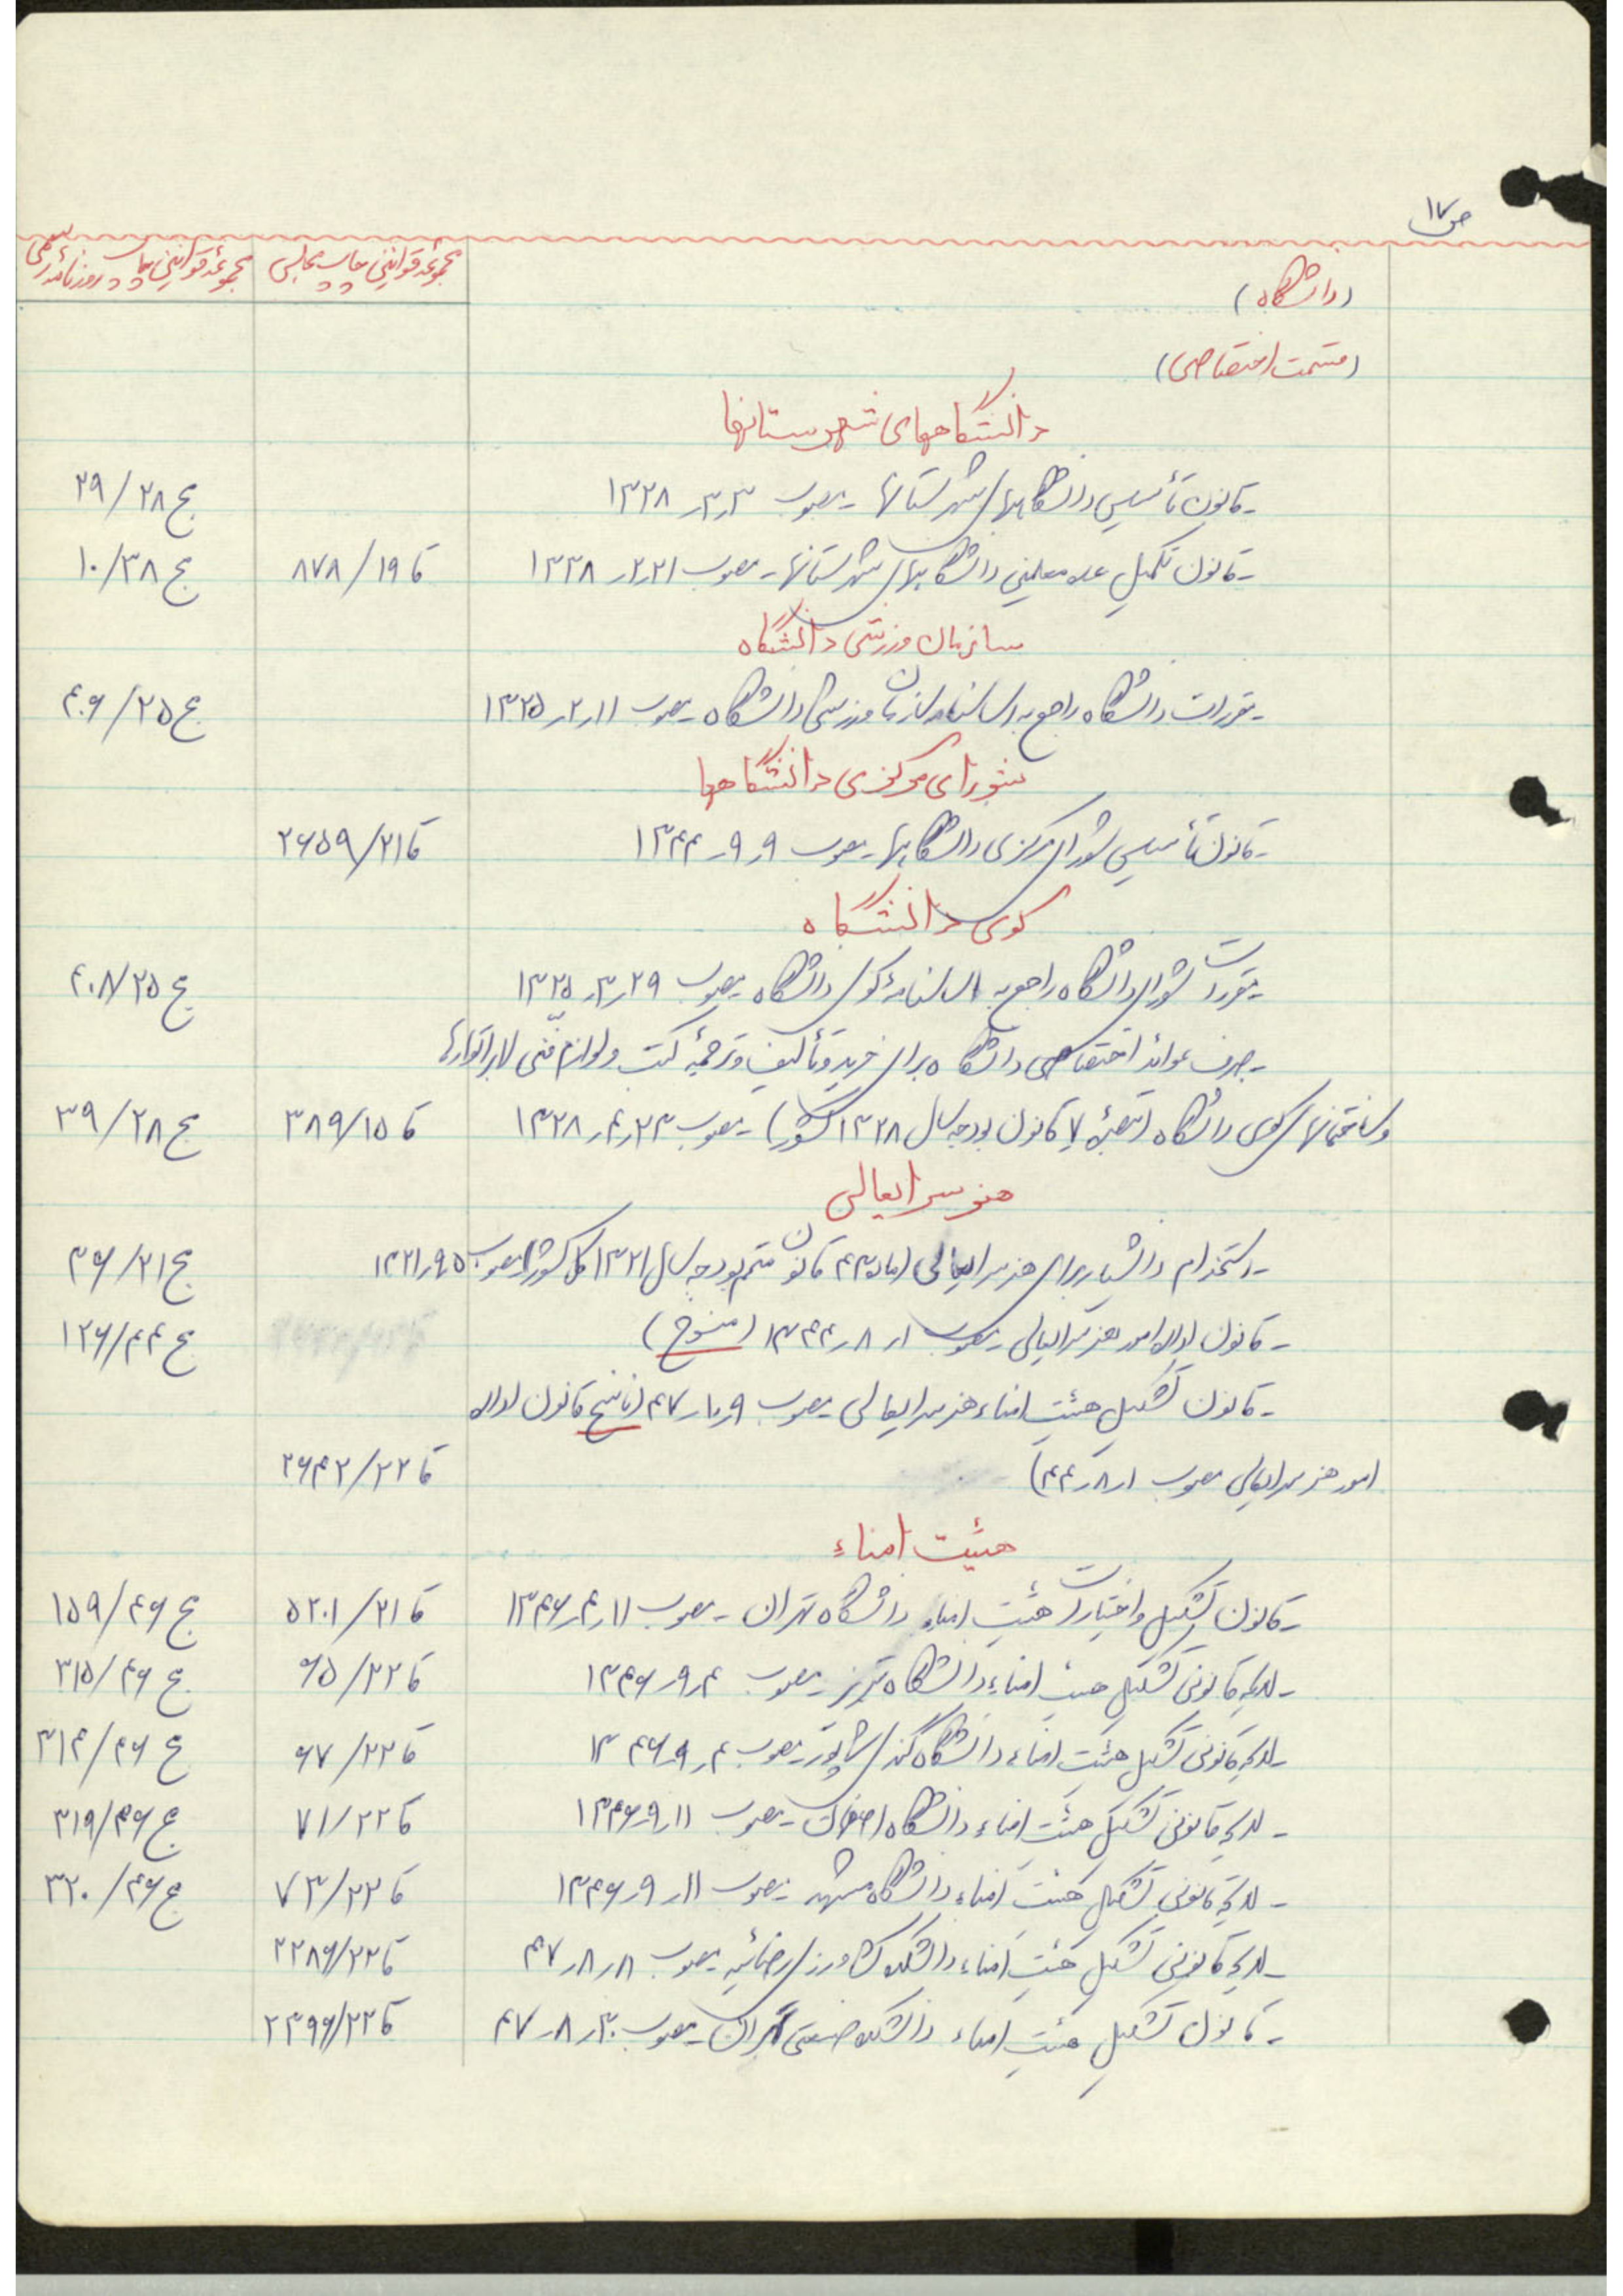 ص ۱۷
مجموعهٔ قوانین چاپ مجلس مجموعهٔ قوانین چاپ روزنامهٔ رسمی
(دانشگاه)
(قسمت اختصاصی)
دانشگاههای شهرستانها
- قانون تأسیس دانشگاههای شهرستانها - مصوب ۳ر۳ر۱۳۲۸ ج ۲۹/۲۸
- قانون تکمیل عده معلمین دانشگاههای شهرستانها - مصوب ۲۱ر۲ر۱۳۳۸ قا ۸۷۸/۱۹ ج ۱۰/۳۸
سازمان ورزشی دانشگاه
- مقررات دانشگاه راجع به اساسنامه سازمان ورزشی دانشگاه - مصوب ۱۱ر۲ر۱۳۲۵ ج ۴۰۶/۲۵
شورای مرکزی دانشگاهها
- قانون تأسیس شورای مرکزی دانشگاهها - مصوب ۹ر۹ر۱۳۴۴ قا ۲۶۵۹/۲۱
کوی دانشگاه
- مقررات شورای دانشگاه راجع به اساسنامهٔ کوی دانشگاه - مصوب ۲۹ر۳ر۱۳۲۵ ج ۴۰۸/۲۵
- صرف عوائد اختصاصی دانشگاه برای خرید و تألیف و ترجمهٔ کتب و لوازم فنّی لابراتوارها
و ساختمانهای کوی دانشگاه (تبصرهٔ ۷ قانون بودجه سال ۱۳۲۸ کشور) - مصوب ۲۳ر۴ر۱۳۲۸ قا ۳۸۹/۱۵ ج ۳۹/۲۸
هنرسرایعالی
- استخدام دانشیار برای هنرسرایعالی (ماده ۴۳ قانون متمم بودجه سال ۱۳۲۱ کل کشور) مصوب ۵ر۹ر۱۳۲۱ ج ۳۶/۲۱
- قانون اداره امور هنرسرایعالی - مصوب ۱ر۸ر۱۳۴۴ (منسوخ) ج ۱۲۶/۴۴
- قانون تشکیل هیئت امناء هنرسرایعالی - مصوب ۹ر۱۰ر۴۷ (ناسخ قانون اداره
امور هنرسرایعالی مصوب ۱ر۸ر۴۴) قا ۲۶۴۲/۲۲
هیئت امناء
- قانون تشکیل و اختیارات هیئت امناء دانشگاه تهران - مصوب ۱۱ر۴ر۱۳۴۶ قا ۵۲۰۱/۲۱ ج ۱۵۹/۴۶
- لایحه قانونی تشکیل هیئت امناء دانشگاه تبریز - مصوب ۴ر۹ر۱۳۴۶ قا ۶۵/۲۲ ج ۳۱۵/۴۶
- لایحه قانونی تشکیل هیئت امناء دانشگاه گندی شاپور - مصوب ۴ر۹ر۱۳۴۶ قا ۶۷/۲۲ ج ۳۱۴/۴۶
- لایحه قانونی تشکیل هیئت امناء دانشگاه اصفهان - مصوب ۱۱ر۹ر۱۳۴۶ قا ۷۱/۲۲ ج ۳۱۹/۴۶
- لایحه قانونی تشکیل هیئت امناء دانشگاه مشهد - مصوب ۱۱ر۹ر۱۳۴۶ قا ۷۳/۲۲ ج ۳۲۰/۴۶
- لایحه قانونی تشکیل هیئت امناء دانشکده کشاورزی رضائیه - مصوب ۸ر۸ر۴۷ قا ۲۲۸۶/۲۲
- قانون تشکیل هیئت امناء دانشکده صنعتی تهران - مصوب ۳۰ر۸ر۴۷ قا ۲۳۹۶/۲۲